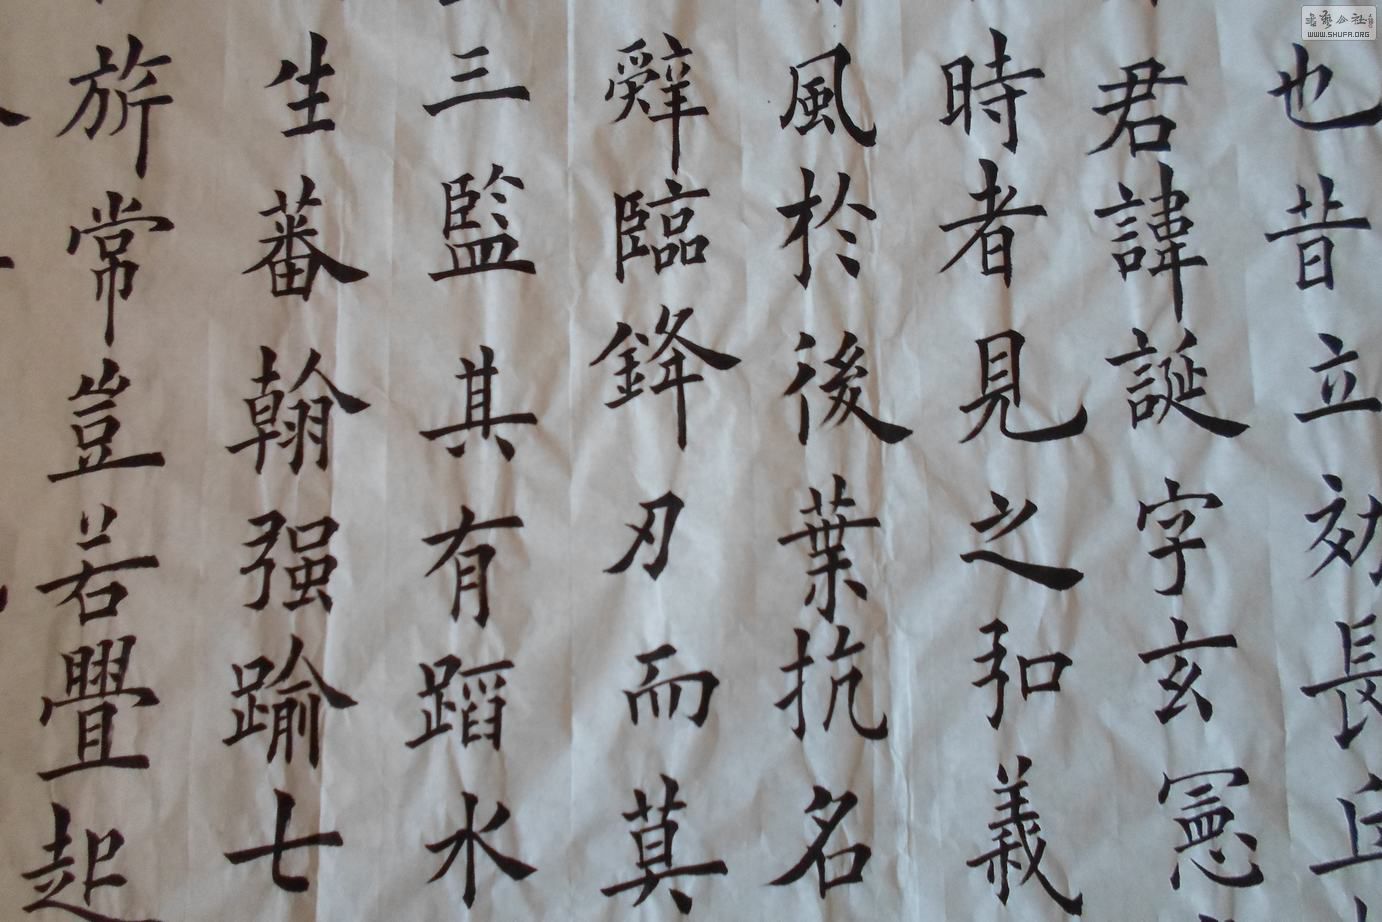 也昔立効長丘
君諱誕字玄憲
時者見之弘義
風於後葉抗名
辭臨鋒刃而莫
三監其有蹈水
生蕃翰强踰七
旂常豈若舋起
書藝公社
WWW.SHUFA.ORG